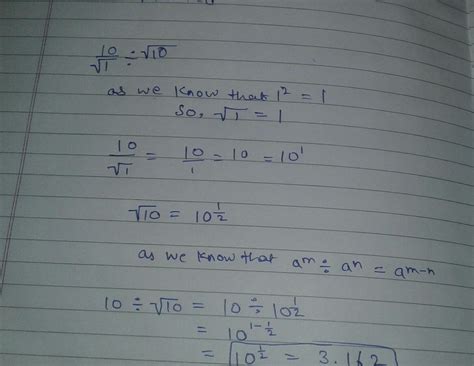 10/√1 ÷ √10
as we know that 1² = 1
So, √1 = 1
10/√1 = 10/1 = 10 = 10¹
√10 = 10^(1/2)
as we know that aᵐ ÷ aⁿ = aᵐ⁻ⁿ
10 ÷ √10 = 10 ÷ 10^(1/2)
= 10^(1-1/2)
= 10^(1/2) = 3.162